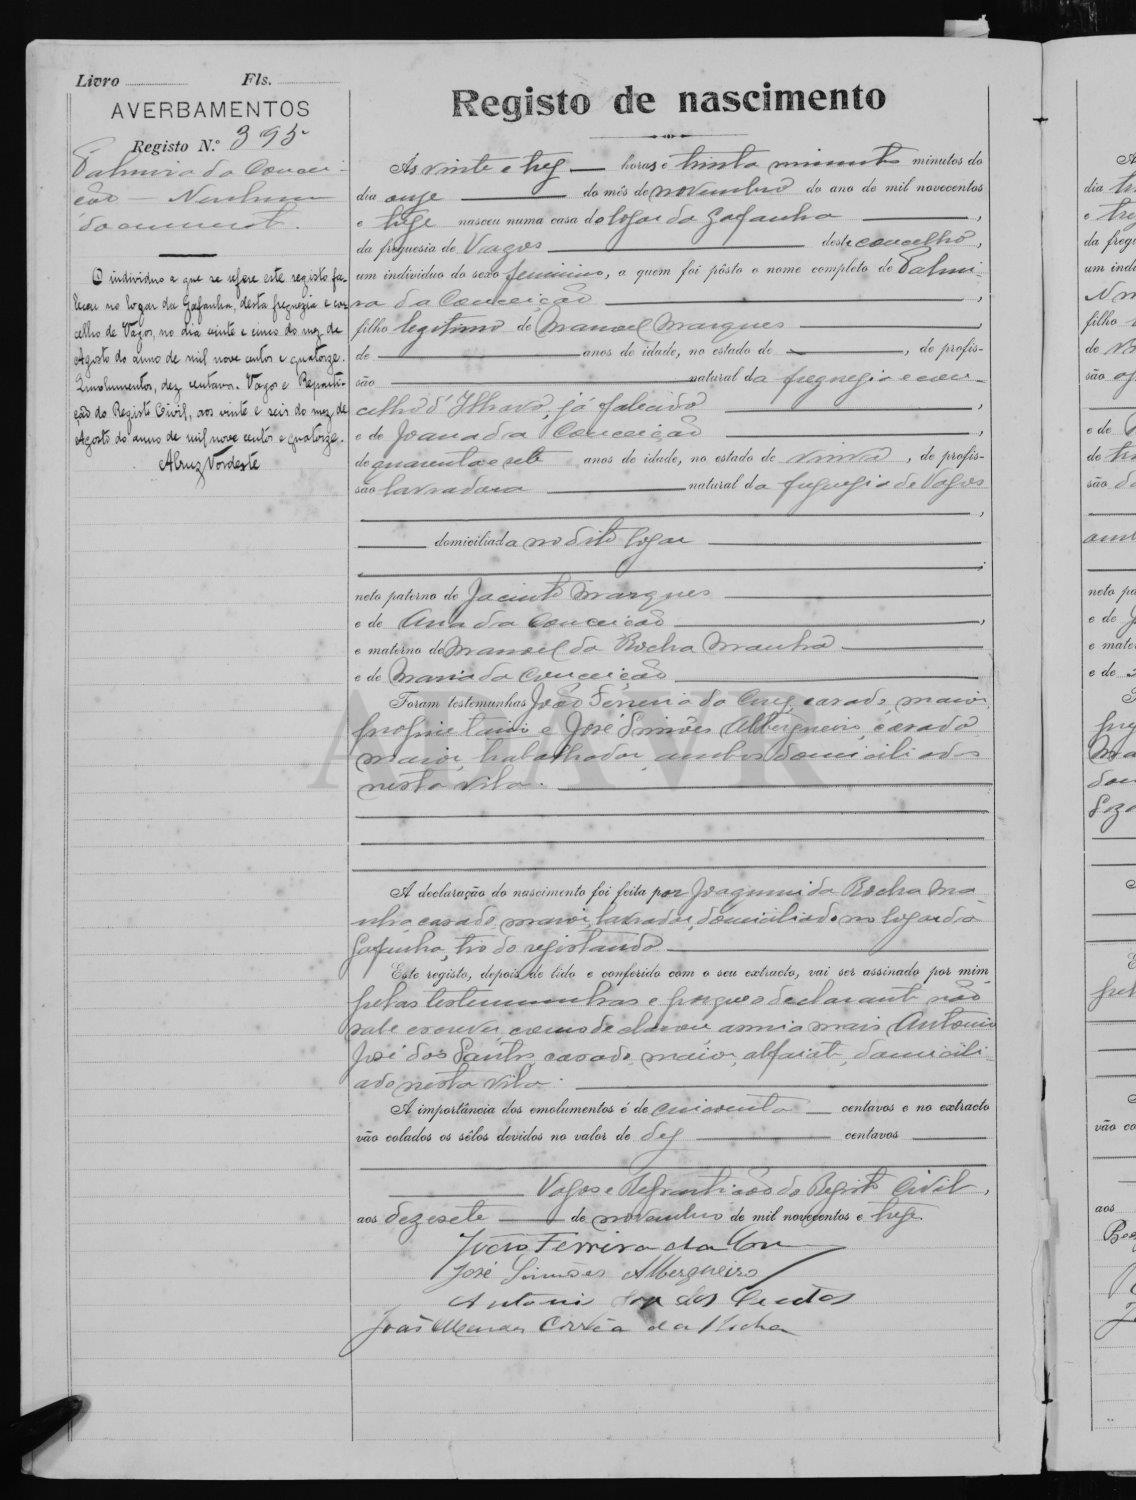 Livro Fls.
AVERBAMENTOS
Registo N.º 395
Palmira da Concei-
ção — Nenhum
documento.
O individuo a que se refere este registo fa-
leceu no logar da Gafanha, desta freguezia e con-
celho de Vagos, no dia vinte e cinco do mez de
Agosto do anno de mil nove centos e quatorze.
Emolumentos, dez centavos. Vagos e Reparti-
ção do Registo Civil, aos vinte e seis do mez de
Agosto do anno de mil nove centos e quatorze.
Registo de nascimento
Ás vinte e trez horas e trinta minutos minutos do
dia onze do mês de novembro do ano de mil novecentos
e treze nasceu numa casa do logar da Gafanha,
da freguesia de Vagos deste concelho,
um indivíduo do sexo feminino, a quem foi pôsto o nome completo de Palmi-
ra da Conceição,
filho legitimo de Manoel Marques,
de anos de idade, no estado de, de profis-
são natural da freguezia e con-
celho d'Ilhavo, já falecido,
e de Joana da Conceição,
de quarenta e sete anos de idade, no estado de viuva, de profis-
são lavradora natural da freguezia de Vagos,
domiciliada no dito logar
neto paterno de Jacinto Marques
e de Ana da Conceição,
e materno de Manoel da Rocha Manho
e de Maria da Conceição
Foram testemunhas João Ferreira da Cruz, casado, maior,
proprietario e José Simões Albergueiro, casado
maior, trabalhador, ambos domiciliados
nesta vila.
ADAVR
A declaração do nascimento foi feita por Joaquim da Rocha Ma-
nho, casado, maior, lavrador, domiciliado no logar da
Gafanha, tio do registando
Este registo, depois de lido e conferido com o seu extracto, vai ser assinado por mim
pelas testemunhas e porque o declarante não
sabe escrever, como declarou assina mais Antonio
José dos Santos, casado, maior, alfaiate, domicili-
ado nesta vila.
A importância dos emolumentos é de cincoenta centavos e no extracto
vão colados os sêlos devidos no valor de dez centavos
Vagos e Repartição do Registo Civil,
aos dezesete de novembro de mil novecentos e treze.
João Ferreira da Cruz
José Simões Albergueiro
Antonio José dos Santos
João Mendes Corrêa da Rocha